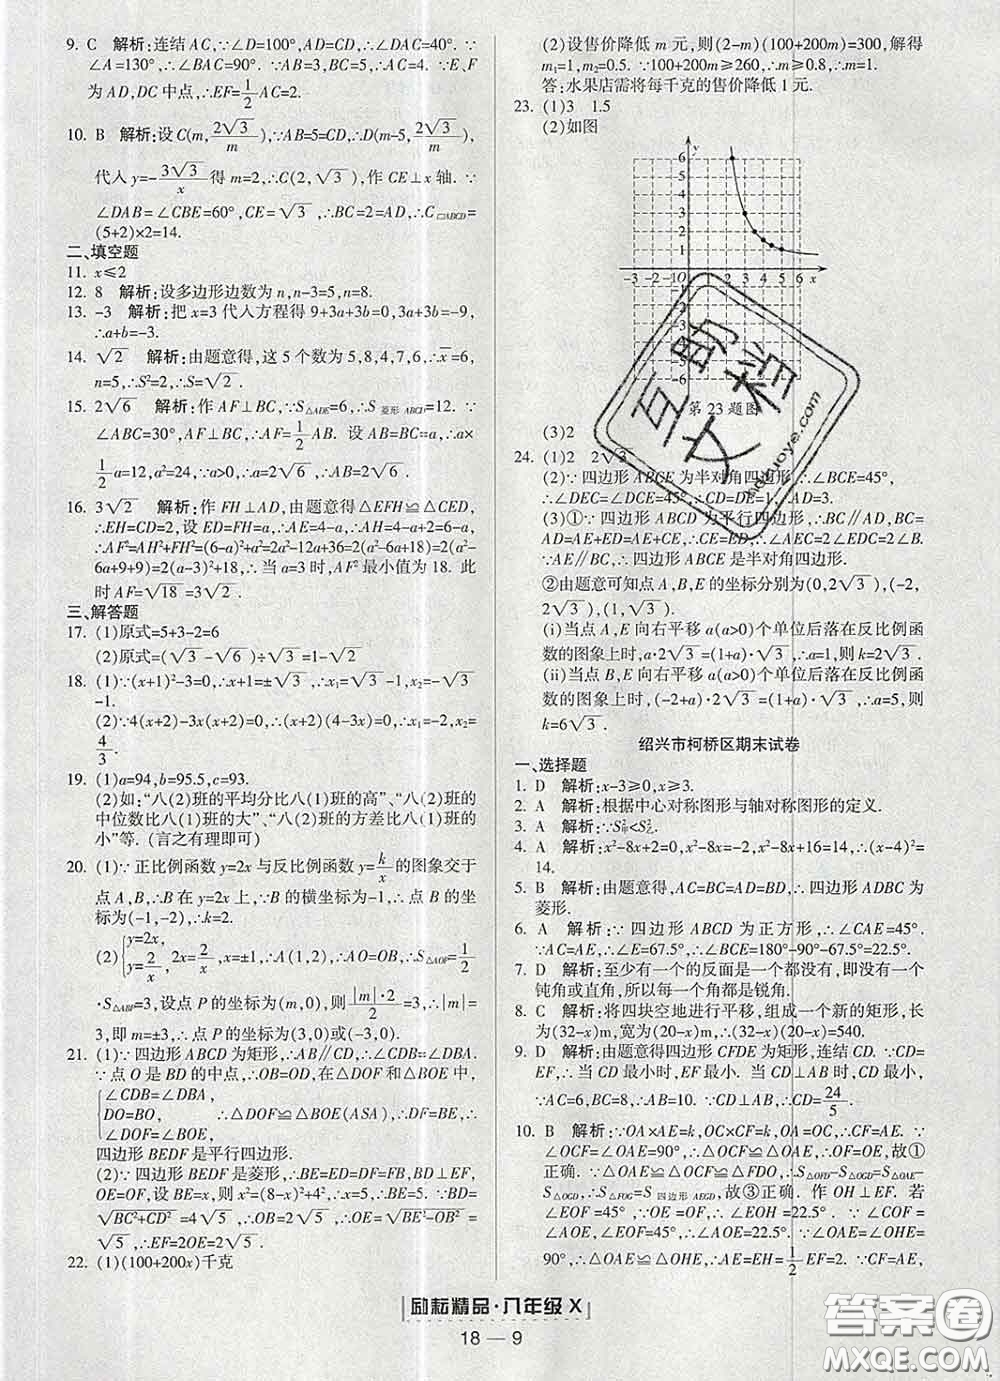 9. C 解析:连结 AC,∵∠D=100°,AD=CD,∴∠DAC=40°. ∵
∠A=130°,∴∠BAC=90°. ∵AB=3,BC=5,∴AC=4. ∵E、F
为 AD,DC 中点,∴EF=1/2 AC=2.
10. B 解析:设 C(m, 2√3/m),∵AB=5=CD,∴D(m-5, 2√3/m),
代入 y=-3√3/x 得 m=2,∴C(2, √3),作 CE⊥x 轴. ∵
∠DAB=∠CBE=60°,CE=√3,∴BC=2=AD,∴C□ABCD=
(5+2)×2=14.
二、填空题
11. x≤2
12. 8 解析:设多边形边数为 n,n-3=5,n=8.
13. -3 解析:把 x=3 代入方程得 9+3a+3b=0,3a+3b=-9,
∴a+b=-3.
14. √2 解析:由题意得,这 5 个数为 5,8,4,7,6,∴x̄=6,
n=5,∴S²=2,∴S=√2.
15. 2√6 解析:作 AF⊥BC,∵S△ADE=6,∴S菱形ABCD=12. ∵
∠ABC=30°,AF⊥BC,∴AF=1/2 AB. 设 AB=BC=a,∴a×
1/2 a=12,a²=24,∵a>0,∴a=2√6,∴BC=2√6.
16. 3√2 解析:作 FH⊥AD,由题意得△EFH≌△CED,
∴EH=CD=2,设 ED=FH=a,∴AE=4-a,∴AH=4-a+2=6-a,
∴AF²=AH²+FH²=(6-a)²+a²=2a²-12a+36=2(a²-6a+18)=2(a²-
6a+9+9)=2(a-3)²+18,∴当 a=3 时,AF² 最小值为 18. 此
时 AF=√18=3√2.
三、解答题
17. (1)原式=5+3-2=6
(2)原式=(√3-√6)÷√3=1-√2
18. (1)∵(x+1)²-3=0,∴x+1=±√3,∴x₁=√3-1,x₂=-√3
-1.
(2)∵4(x+2)-3x(x+2)=0,∴(x+2)(4-3x)=0,∴x₁=-2,x₂=
4/3.
19. (1)a=94,b=95.5,c=93.
(2)如:“八(2)班的平均分比八(1)班的高”、“八(2)班的
中位数比八(1)班的大”、“八(2)班的方差比八(1)班的
小”等. (言之有理即可)
20. (1)∵正比例函数 y=2x 与反比例函数 y=k/x 的图象交于
点 A,B,∴B 在 y=2x 上,∵B 的横坐标为-1,∴点 B 的坐
标为(-1,-2),∴k=2.
(2){y=2x, y=2/x, 2x=2/x,x=±1,∴A(1,2),∵OA=OB,∴S△AOP=1/2
·S△ABP=3,设点 P 的坐标为(m,0),则 |m|·2/2=3,∴|m|=
3,即 m=±3,∴点 P 的坐标为(3,0)或(-3,0).
21. (1)∵四边形 ABCD 为矩形,∴AB∥CD,∴∠CDB=∠DBA.
∵点 O 是 BD 的中点,∴OB=OD,在△DOF 和△BOE 中,
{∠CDB=∠DBA,
DO=BO, ∴△DOF≌△BOE(ASA),∴DF=BE,∴
∠DOF=∠BOE,
四边形 BEDF 是平行四边形.
(2)∵四边形 BEDF 是菱形,∴BE=ED=DF=FB,BD⊥EF,
OE=OF,设 BE=x,则 x²=(8-x)²+4²,∴x=5,∴BE=5. ∵BD=
√(BC²+CD²)=4√5,∴OB=2√5,∴OE=√(BE²-OB²)=
√5,∴EF=2OE=2√5.
22. (1)(100+200x)千克
(2)设售价降低 m 元,则(2-m)(100+200m)=300,解得
m₁=1,m₂=0.5. ∵100+200m≥260,∴m≥0.8,∴m=1.
答:水果店需将每千克的售价降低 1 元.
23. (1)3 1.5
(2)如图
y
6
5
4
3
2
1
-3 -2 -1 O 1 2 3 4 5 6 x
第 23 题图
(3)2
24. (1)2 2√3
(2)∵四边形 ABCE 为半对角四边形,∴∠BCE=45°,
∴∠DEC=∠DCE=45°,∴CD=DE=1.
(3)①∵四边形 ABCD 为平行四边形,∴BC∥AD,BC=
AD=AE+ED=AE+CE,∴CE=ED,∴∠AEC=2∠EDC=2∠B.
∵AE∥BC,∴四边形 ABCE 是半对角四边形.
②由题意可知点 A,B,E 的坐标分别为(0,2√3),(-2,
2√3),(1,√3).
(i)当点 A,E 向右平移 a(a>0)个单位后落在反比例函
数的图象上时,a·2√3=(1+a)·√3,∴a=1,∴k=2√3.
(ii)当点 B,E 向右平移 a(a>0)个单位后落在反比例函
数的图象上时,(-2+a)·2√3=(1+a)·√3,∴a=5,则
k=6√3.
绍兴市柯桥区期末试卷
一、选择题
1. D 解析:x-3≥0,x≥3.
2. A 解析:根据中心对称图形与轴对称图形的定义.
3. A 解析:∵S²甲<S²乙.
4. A 解析:x²-8x+2=0,x²-8x=-2,x²-8x+16=14,∴(x-4)²=
14.
5. B 解析:由题意得,AC=BC=AD=BD,∴四边形 ADBC 为
菱形.
6. A 解析:∵四边形 ABCD 为正方形,∴∠CAE=45°.
∵AC=AE,∴∠E=67.5°,∴∠BCE=180°-90°-67.5°=22.5°.
7. D 解析:至少有一个的反面是一个都没有,即没有一个
钝角或直角,所以每一个角都是锐角.
8. C 解析:将四块空地进行平移,组成一个新的矩形,长
为(32-x)m,宽为(20-x)m,∴(32-x)(20-x)=540.
9. D 解析:由题意得四边形 CFDE 为矩形,连结 CD. ∵CD=
EF,∴当 CD 最小时,EF 最小. 当 CD⊥AB 时,CD 最小,
∵AC=6,BC=8,∴AB=10. ∵CD⊥AB,∴CD=24/5.
10. B 解析:∵OA×AE=k,OC×CF=k,OA=OC,∴CF=AE. ∵
∠OCF=∠OAE=90°,∴△OCF≌△OAE,∴OF=OE,故①
正确. ∵△OAE≌△OCF≌△FDO,∴S△OFD-S△OGD=S△OAE-
S△OGD,∴S△FOG=S四边形AEGD,故③正确. 作 OH⊥EF. 若
∠EOF=45°,∵OE=OF,∴∠EOH=22.5°. ∵∠COF=
∠AOE,∠EOF=45°,∴∠AOE=22.5°. ∵∠OAE=∠OHE=
90°,∴△OAE≌△OHE,∴AE=EH=1/2 EF=2. ∵CF=AE,
励耘精品·八年级 X
18 — 9
互助文档
答案圈
MXQE.COM